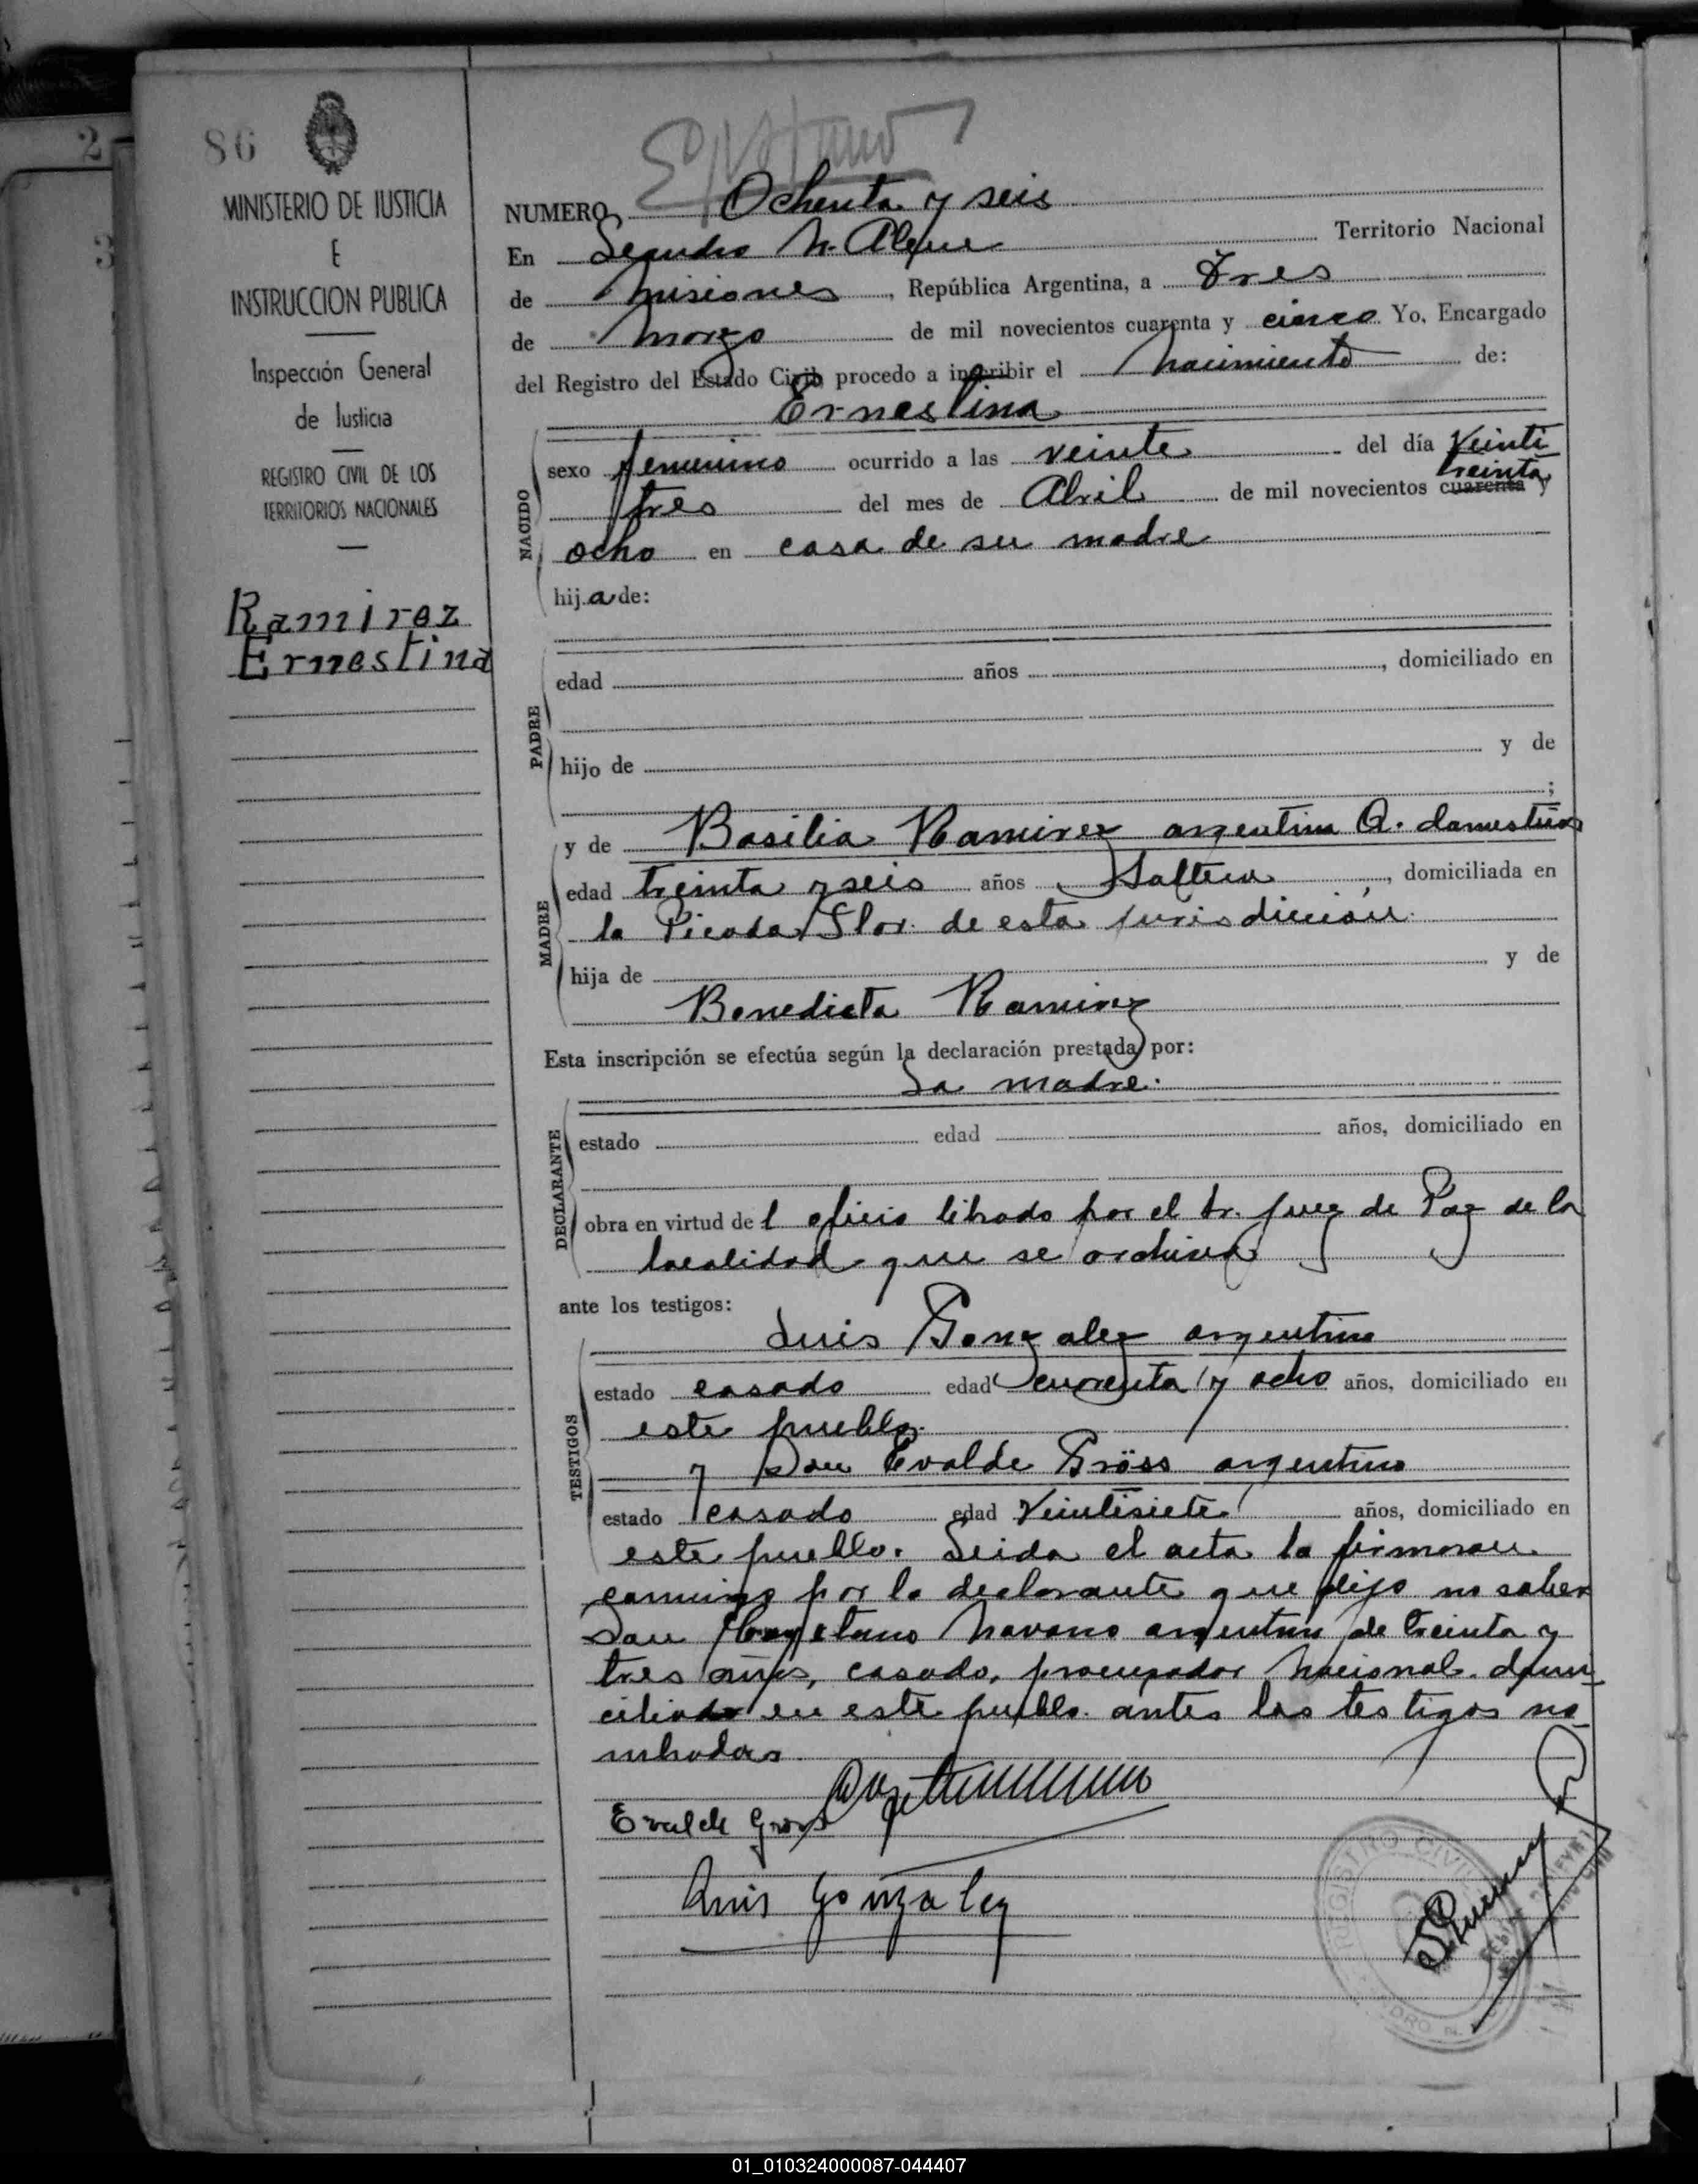 86
MINISTERIO DE JUSTICIA
E
INSTRUCCION PUBLICA
Inspección General
de Justicia
REGISTRO CIVIL DE LOS
TERRITORIOS NACIONALES
Ramirez
Ernestina
NUMERO Ochenta y seis
En Leandro N. Alem Territorio Nacional
de Misiones, República Argentina, a Tres
de Marzo de mil novecientos cuarenta y cinco Yo, Encargado
del Registro del Estado Civil, procedo a inscribir el nacimiento de:
Ernestina
NACIDO
sexo femenino ocurrido a las veinte del día Veinti
treinta
tres del mes de Abril de mil novecientos cuarenta y
ocho en casa de su madre
hija de:
PADRE
edad años , domiciliado en
hijo de y de
;
MADRE
y de Basilia Ramirez argentina Q. domesticos
edad treinta y seis años Soltera, domiciliada en
la Picada Flor de esta jurisdicción.
hija de y de
Benedicta Ramirez
Esta inscripción se efectúa según la declaración prestada por:
La madre.
DECLARANTE
estado edad años, domiciliado en
obra en virtud del oficio librado por el Sr. Juez de Paz de la
localidad que se archiva
ante los testigos:
TESTIGOS
Luis Gonzalez argentino
estado casado edad cuarenta y ocho años, domiciliado en
este pueblo.
y Don Evalde Gröss argentino
estado casado edad Veintisiete años, domiciliado en
este pueblo. Leida el acta la firmaron
conmigo por la declarante que dijo no saber
Don Navarro argentino de treinta y
tres años, casado, procurador Nacional domi-
ciliado en este pueblo antes los testigos no
mbrados.
Evalde Gross
Luis Gonzalez
REGISTRO CIVIL
01_010324000087-044407